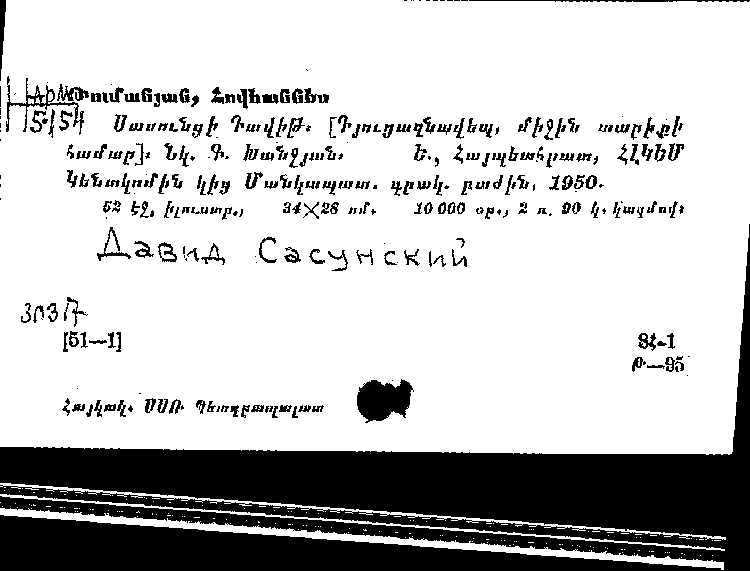 Թումանյան, Հովհաննես
5/54
Սասունցի Դավիթ. [Դյուցազնավեպ, միջին տարիքի
համար]։ Նկ. Դ. Խանջյան. Ե., Հայպետհրատ, ՀԼԿԵՄ
Կենտկոմին կից Մանկապատ. գրակ. բաժին, 1950.
52 էջ, իլյուստր., 34×26 սմ. 10 000 օր., 2 ռ. 90 կ. կազմով։
Давид Сасунский
[51—1]
8Հ-1
Թ—95
Հայկակ. ՍՍՌ Պետգրապալատ